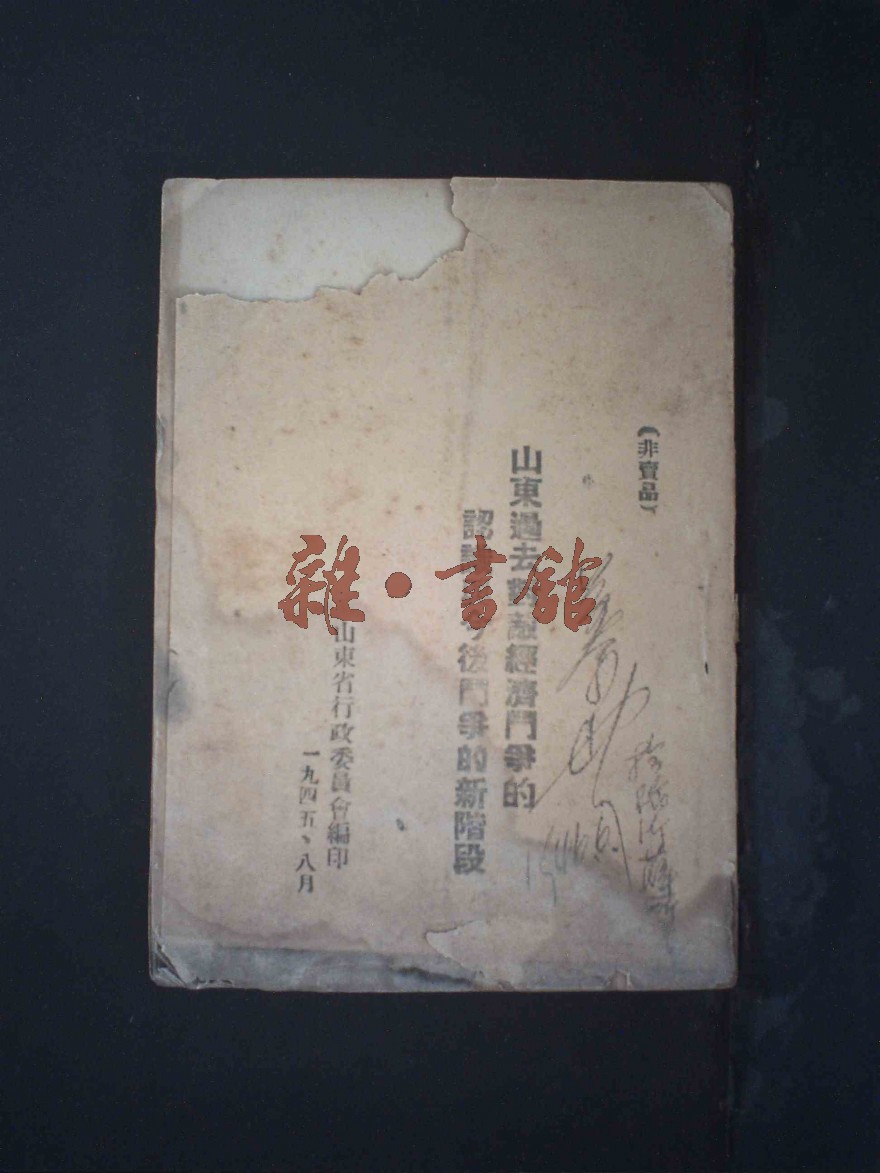 （非賣品）
山東過去對敵經濟鬥爭的
認識與今後鬥爭的新階段
山東省行政委員會編印
一九四五、八月
雜·書館